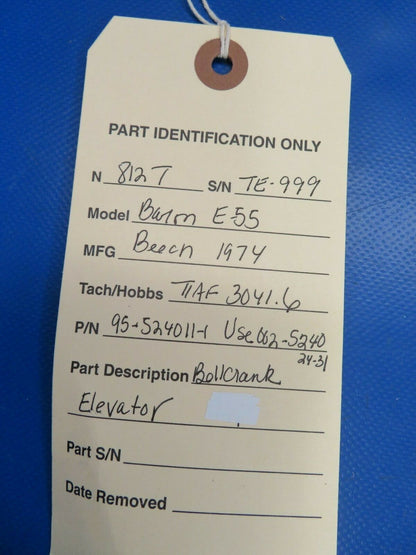 PART IDENTIFICATION ONLY
N 812T S/N TE-999
Model Baron E-55
MFG Beech 1974
Tach/Hobbs TTAF 3041.6
P/N 95-524011-1 Use 002-5240
24-31
Part Description Bellcrank
Elevator
Part S/N
Date Removed